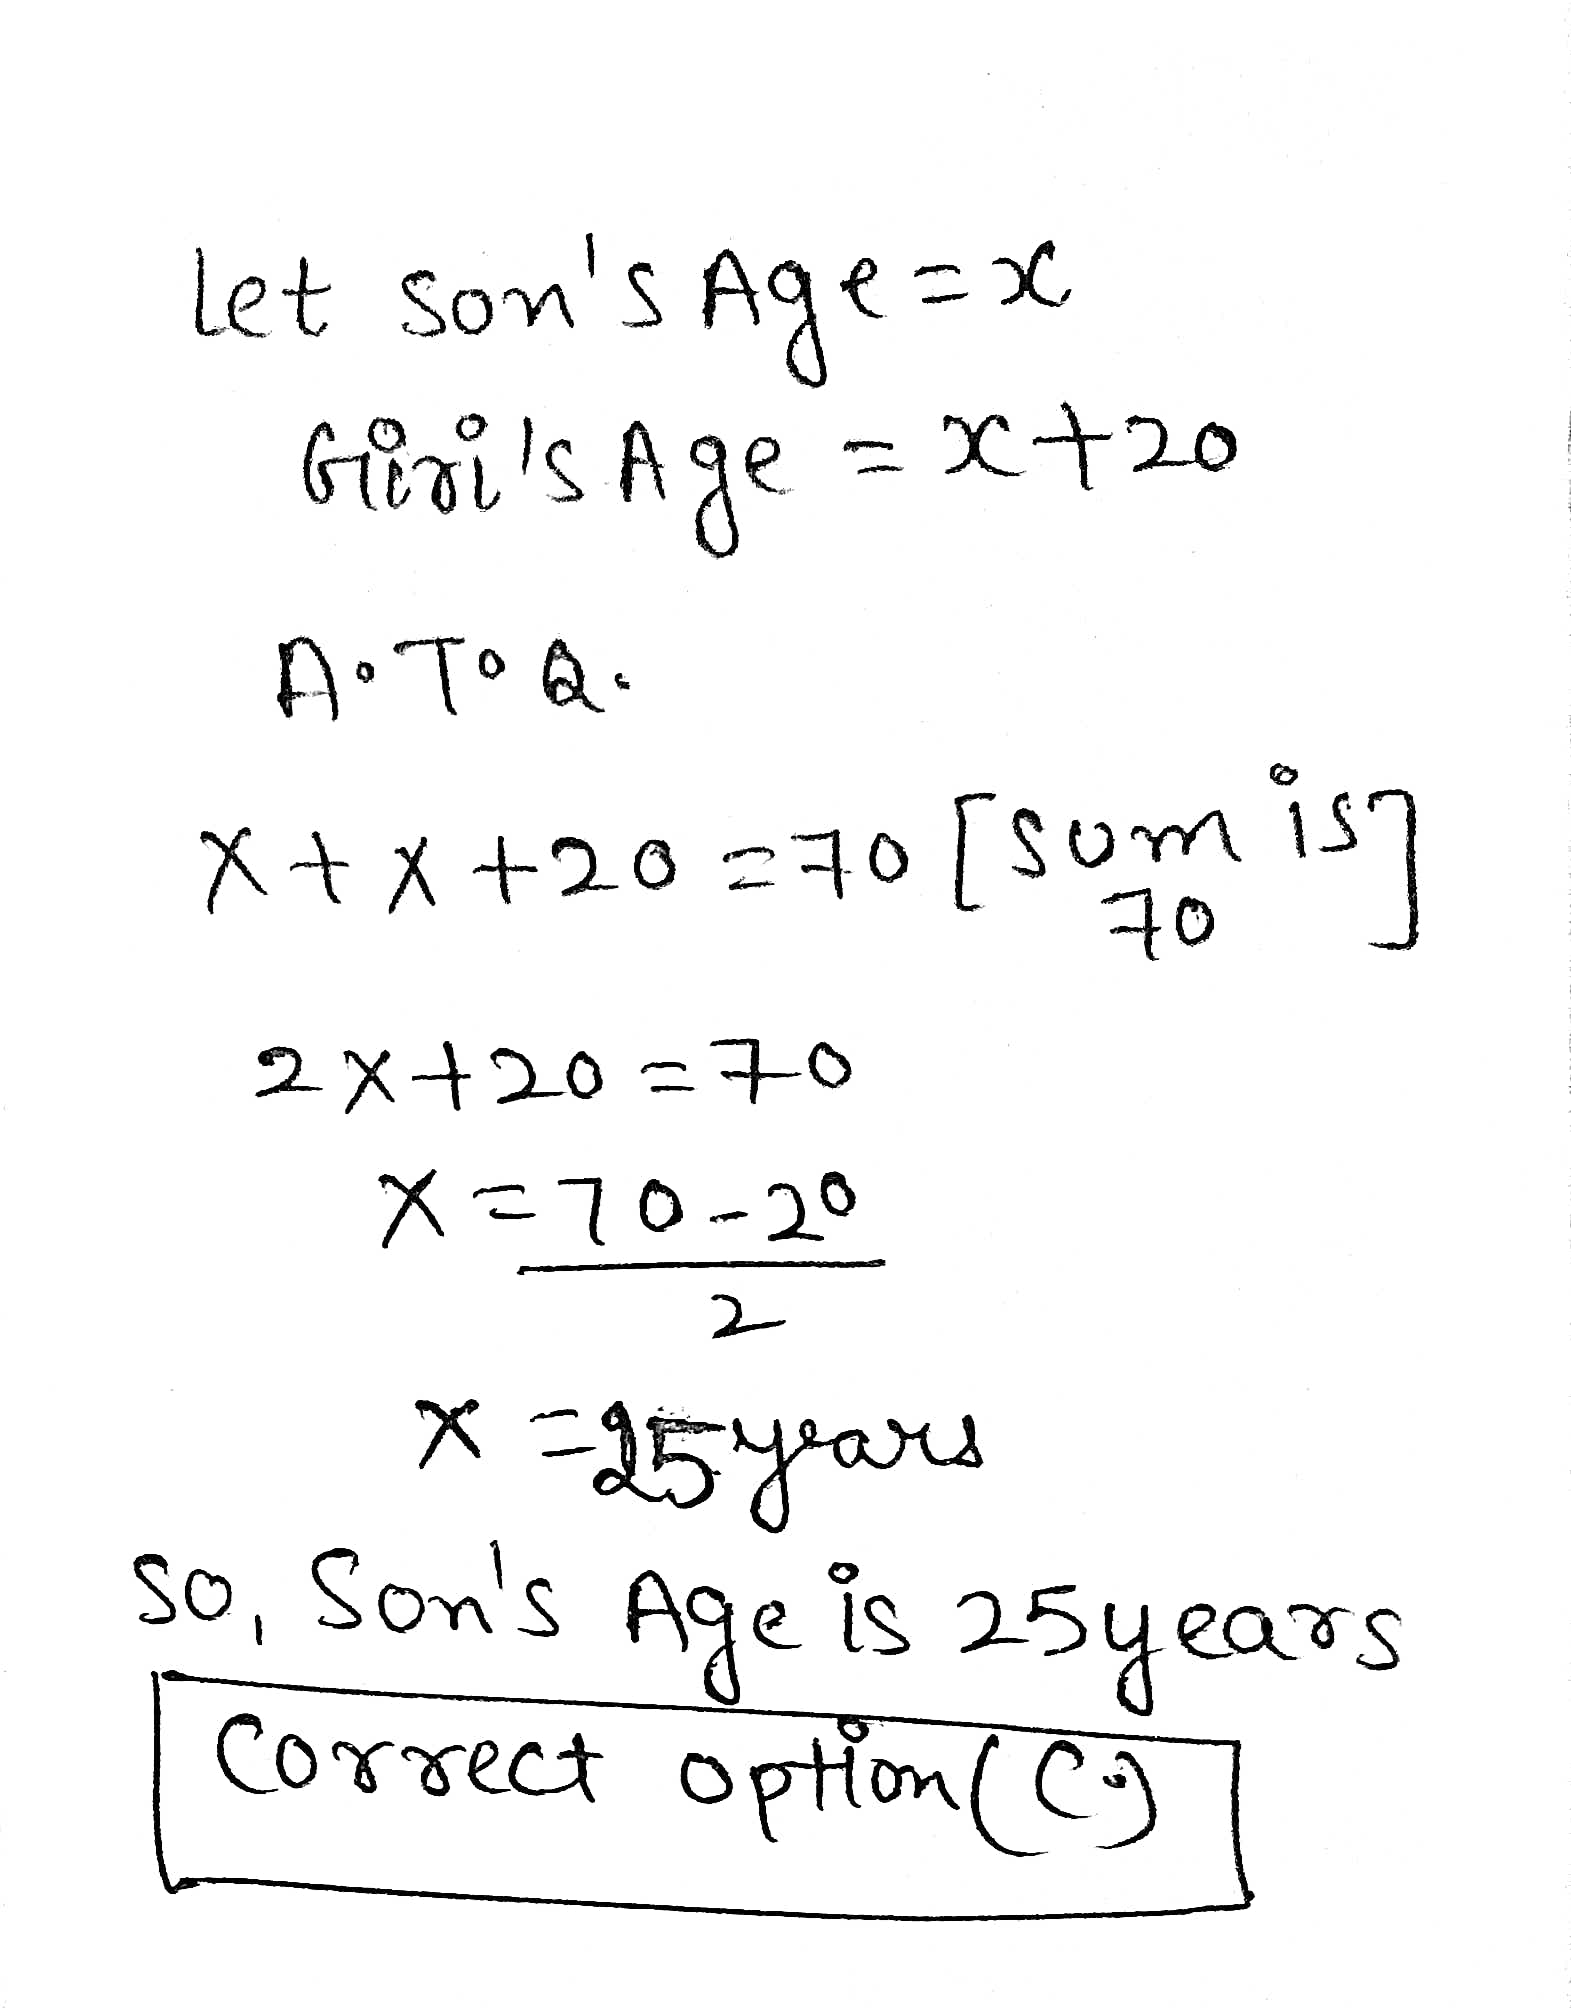 Let son's Age = x
Giri's Age = x+20
A.T.Q.
x + x + 20 = 70 [sum is]
70
2x+20 = 70
x = 70-20
2
x = 25 years
so, Son's Age is 25 years
Correct option (C.)